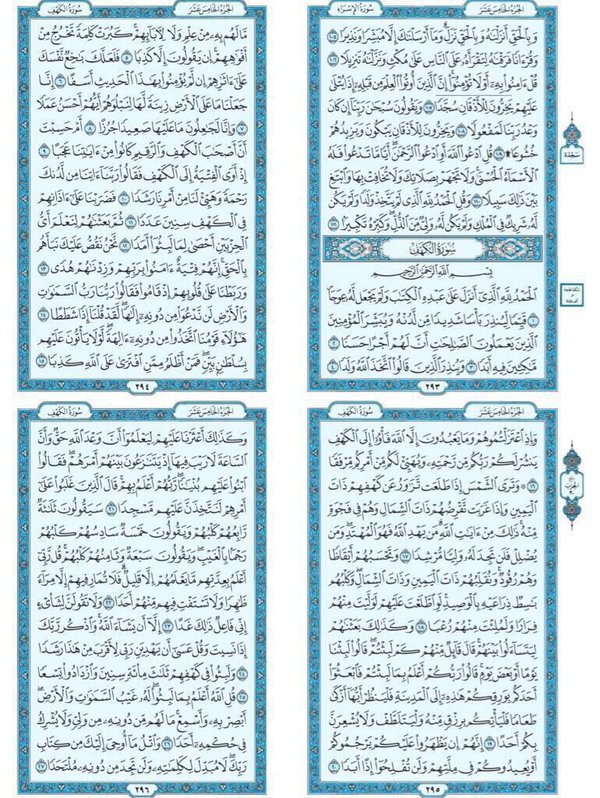 الجُزْءُ الخَامِسَ عَشَرَ
سُورَةُ الإِسْرَاءِ
وَبِالْحَقِّ أَنزَلْنَاهُ وَبِالْحَقِّ نَزَلَ وَمَا أَرْسَلْنَاكَ إِلَّا مُبَشِّرًا وَنَذِيرًا ١٠٥
وَقُرْءَانًا فَرَقْنَاهُ لِتَقْرَأَهُ عَلَى النَّاسِ عَلَى مُكْثٍ وَنَزَّلْنَاهُ تَنزِيلًا ١٠٦
قُلْ ءَامِنُوا بِهِ أَوْ لَا تُؤْمِنُوا إِنَّ الَّذِينَ أُوتُوا الْعِلْمَ مِن قَبْلِهِ إِذَا يُتْلَى
عَلَيْهِمْ يَخِرُّونَ لِلْأَذْقَانِ سُجَّدًا ١٠٧ وَيَقُولُونَ سُبْحَانَ رَبِّنَا إِن كَانَ
وَعْدُ رَبِّنَا لَمَفْعُولًا ١٠٨ وَيَخِرُّونَ لِلْأَذْقَانِ يَبْكُونَ وَيَزِيدُهُمْ
خُشُوعًا ۩ ١٠٩ قُلِ ادْعُوا اللَّهَ أَوِ ادْعُوا الرَّحْمَنَ أَيًّا مَّا تَدْعُوا فَلَهُ
الْأَسْمَاءُ الْحُسْنَى وَلَا تَجْهَرْ بِصَلَاتِكَ وَلَا تُخَافِتْ بِهَا وَابْتَغِ
بَيْنَ ذَلِكَ سَبِيلًا ١١٠ وَقُلِ الْحَمْدُ لِلَّهِ الَّذِي لَمْ يَتَّخِذْ وَلَدًا وَلَمْ يَكُن
لَّهُ شَرِيكٌ فِي الْمُلْكِ وَلَمْ يَكُن لَّهُ وَلِيٌّ مِّنَ الذُّلِّ وَكَبِّرْهُ تَكْبِيرًا ١١١
سُورَةُ الْكَهْفِ
بِسْمِ اللَّهِ الرَّحْمَنِ الرَّحِيمِ
الْحَمْدُ لِلَّهِ الَّذِي أَنزَلَ عَلَى عَبْدِهِ الْكِتَابَ وَلَمْ يَجْعَل لَّهُ عِوَجًا
١ قَيِّمًا لِّيُنذِرَ بَأْسًا شَدِيدًا مِّن لَّدُنْهُ وَيُبَشِّرَ الْمُؤْمِنِينَ
الَّذِينَ يَعْمَلُونَ الصَّالِحَاتِ أَنَّ لَهُمْ أَجْرًا حَسَنًا ٢
مَّاكِثِينَ فِيهِ أَبَدًا ٣ وَيُنذِرَ الَّذِينَ قَالُوا اتَّخَذَ اللَّهُ وَلَدًا ٤
٢٩٣
سَجْدَة
الجُزْءُ الخَامِسَ عَشَرَ
سُورَةُ الكَهْفِ
مَّا لَهُم بِهِ مِنْ عِلْمٍ وَلَا لِآبَائِهِمْ كَبُرَتْ كَلِمَةً تَخْرُجُ مِنْ
أَفْوَاهِهِمْ إِن يَقُولُونَ إِلَّا كَذِبًا ٥ فَلَعَلَّكَ بَاخِعٌ نَّفْسَكَ
عَلَى ءَاثَارِهِمْ إِن لَّمْ يُؤْمِنُوا بِهَذَا الْحَدِيثِ أَسَفًا ٦ إِنَّا
جَعَلْنَا مَا عَلَى الْأَرْضِ زِينَةً لَّهَا لِنَبْلُوَهُمْ أَيُّهُمْ أَحْسَنُ عَمَلًا
٧ وَإِنَّا لَجَاعِلُونَ مَا عَلَيْهَا صَعِيدًا جُرُزًا ٨ أَمْ حَسِبْتَ
أَنَّ أَصْحَابَ الْكَهْفِ وَالرَّقِيمِ كَانُوا مِنْ ءَايَاتِنَا عَجَبًا ٩
إِذْ أَوَى الْفِتْيَةُ إِلَى الْكَهْفِ فَقَالُوا رَبَّنَا ءَاتِنَا مِن لَّدُنكَ
رَحْمَةً وَهَيِّئْ لَنَا مِنْ أَمْرِنَا رَشَدًا ١٠ فَضَرَبْنَا عَلَى ءَاذَانِهِمْ
فِي الْكَهْفِ سِنِينَ عَدَدًا ١١ ثُمَّ بَعَثْنَاهُمْ لِنَعْلَمَ أَيُّ
الْحِزْبَيْنِ أَحْصَى لِمَا لَبِثُوا أَمَدًا ١٢ نَّحْنُ نَقُصُّ عَلَيْكَ نَبَأَهُم
بِالْحَقِّ إِنَّهُمْ فِتْيَةٌ ءَامَنُوا بِرَبِّهِمْ وَزِدْنَاهُمْ هُدًى ١٣
وَرَبَطْنَا عَلَى قُلُوبِهِمْ إِذْ قَامُوا فَقَالُوا رَبُّنَا رَبُّ السَّمَاوَاتِ
وَالْأَرْضِ لَن نَّدْعُوَا مِن دُونِهِ إِلَهًا لَّقَدْ قُلْنَا إِذًا شَطَطًا ١٤
هَؤُلَاءِ قَوْمُنَا اتَّخَذُوا مِن دُونِهِ ءَالِهَةً لَّوْلَا يَأْتُونَ عَلَيْهِم
بِسُلْطَانٍ بَيِّنٍ فَمَنْ أَظْلَمُ مِمَّنِ افْتَرَى عَلَى اللَّهِ كَذِبًا ١٥
٢٩٤
الجُزْءُ الخَامِسَ عَشَرَ
سُورَةُ الكَهْفِ
وَإِذِ اعْتَزَلْتُمُوهُمْ وَمَا يَعْبُدُونَ إِلَّا اللَّهَ فَأْوُوا إِلَى الْكَهْفِ
يَنشُرْ لَكُمْ رَبُّكُم مِّن رَّحْمَتِهِ وَيُهَيِّئْ لَكُم مِّنْ أَمْرِكُم مِّرْفَقًا
١٦ وَتَرَى الشَّمْسَ إِذَا طَلَعَت تَّزَاوَرُ عَن كَهْفِهِمْ ذَاتَ
الْيَمِينِ وَإِذَا غَرَبَت تَّقْرِضُهُمْ ذَاتَ الشِّمَالِ وَهُمْ فِي فَجْوَةٍ
مِّنْهُ ذَلِكَ مِنْ ءَايَاتِ اللَّهِ مَن يَهْدِ اللَّهُ فَهُوَ الْمُهْتَدِ وَمَن
يُضْلِلْ فَلَن تَجِدَ لَهُ وَلِيًّا مُّرْشِدًا ١٧ وَتَحْسَبُهُمْ أَيْقَاظًا
وَهُمْ رُقُودٌ وَنُقَلِّبُهُمْ ذَاتَ الْيَمِينِ وَذَاتَ الشِّمَالِ وَكَلْبُهُم
بَاسِطٌ ذِرَاعَيْهِ بِالْوَصِيدِ لَوِ اطَّلَعْتَ عَلَيْهِمْ لَوَلَّيْتَ مِنْهُمْ
فِرَارًا وَلَمُلِئْتَ مِنْهُمْ رُعْبًا ١٨ وَكَذَلِكَ بَعَثْنَاهُمْ
لِيَتَسَاءَلُوا بَيْنَهُمْ قَالَ قَائِلٌ مِّنْهُمْ كَمْ لَبِثْتُمْ قَالُوا لَبِثْنَا
يَوْمًا أَوْ بَعْضَ يَوْمٍ قَالُوا رَبُّكُمْ أَعْلَمُ بِمَا لَبِثْتُمْ فَابْعَثُوا
أَحَدَكُم بِوَرِقِكُمْ هَذِهِ إِلَى الْمَدِينَةِ فَلْيَنظُرْ أَيُّهَا أَزْكَى
طَعَامًا فَلْيَأْتِكُم بِرِزْقٍ مِّنْهُ وَلْيَتَلَطَّفْ وَلَا يُشْعِرَنَّ
بِكُمْ أَحَدًا ١٩ إِنَّهُمْ إِن يَظْهَرُوا عَلَيْكُمْ يَرْجُمُوكُمْ
أَوْ يُعِيدُوكُمْ فِي مِلَّتِهِمْ وَلَن تُفْلِحُوا إِذًا أَبَدًا ٢٠
٢٩٥
الجُزْءُ الخَامِسَ عَشَرَ
سُورَةُ الكَهْفِ
وَكَذَلِكَ أَعْثَرْنَا عَلَيْهِمْ لِيَعْلَمُوا أَنَّ وَعْدَ اللَّهِ حَقٌّ وَأَنَّ
السَّاعَةَ لَا رَيْبَ فِيهَا إِذْ يَتَنَازَعُونَ بَيْنَهُمْ أَمْرَهُمْ فَقَالُوا
ابْنُوا عَلَيْهِم بُنْيَانًا رَّبُّهُمْ أَعْلَمُ بِهِمْ قَالَ الَّذِينَ غَلَبُوا عَلَى
أَمْرِهِمْ لَنَتَّخِذَنَّ عَلَيْهِم مَّسْجِدًا ٢١ سَيَقُولُونَ ثَلَاثَةٌ
رَّابِعُهُمْ كَلْبُهُمْ وَيَقُولُونَ خَمْسَةٌ سَادِسُهُمْ كَلْبُهُمْ
رَجْمًا بِالْغَيْبِ وَيَقُولُونَ سَبْعَةٌ وَثَامِنُهُمْ كَلْبُهُمْ قُل رَّبِّي
أَعْلَمُ بِعِدَّتِهِم مَّا يَعْلَمُهُمْ إِلَّا قَلِيلٌ فَلَا تُمَارِ فِيهِمْ إِلَّا مِرَاءً
ظَاهِرًا وَلَا تَسْتَفْتِ فِيهِم مِّنْهُمْ أَحَدًا ٢٢ وَلَا تَقُولَنَّ لِشَاْيْءٍ
إِنِّي فَاعِلٌ ذَلِكَ غَدًا ٢٣ إِلَّا أَن يَشَاءَ اللَّهُ وَاذْكُر رَّبَّكَ
إِذَا نَسِيتَ وَقُلْ عَسَى أَن يَهْدِيَنِ رَبِّي لِأَقْرَبَ مِنْ هَذَا رَشَدًا
٢٤ وَلَبِثُوا فِي كَهْفِهِمْ ثَلَاثَ مِائَةٍ سِنِينَ وَازْدَادُوا تِسْعًا
٢٥ قُلِ اللَّهُ أَعْلَمُ بِمَا لَبِثُوا لَهُ غَيْبُ السَّمَاوَاتِ وَالْأَرْضِ
أَبْصِرْ بِهِ وَأَسْمِعْ مَا لَهُم مِّن دُونِهِ مِن وَلِيٍّ وَلَا يُشْرِكُ
فِي حُكْمِهِ أَحَدًا ٢٦ وَاتْلُ مَا أُوحِيَ إِلَيْكَ مِن كِتَابِ
رَبِّكَ لَا مُبَدِّلَ لِكَلِمَاتِهِ وَلَن تَجِدَ مِن دُونِهِ مُلْتَحَدًا ٢٧
٢٩٦